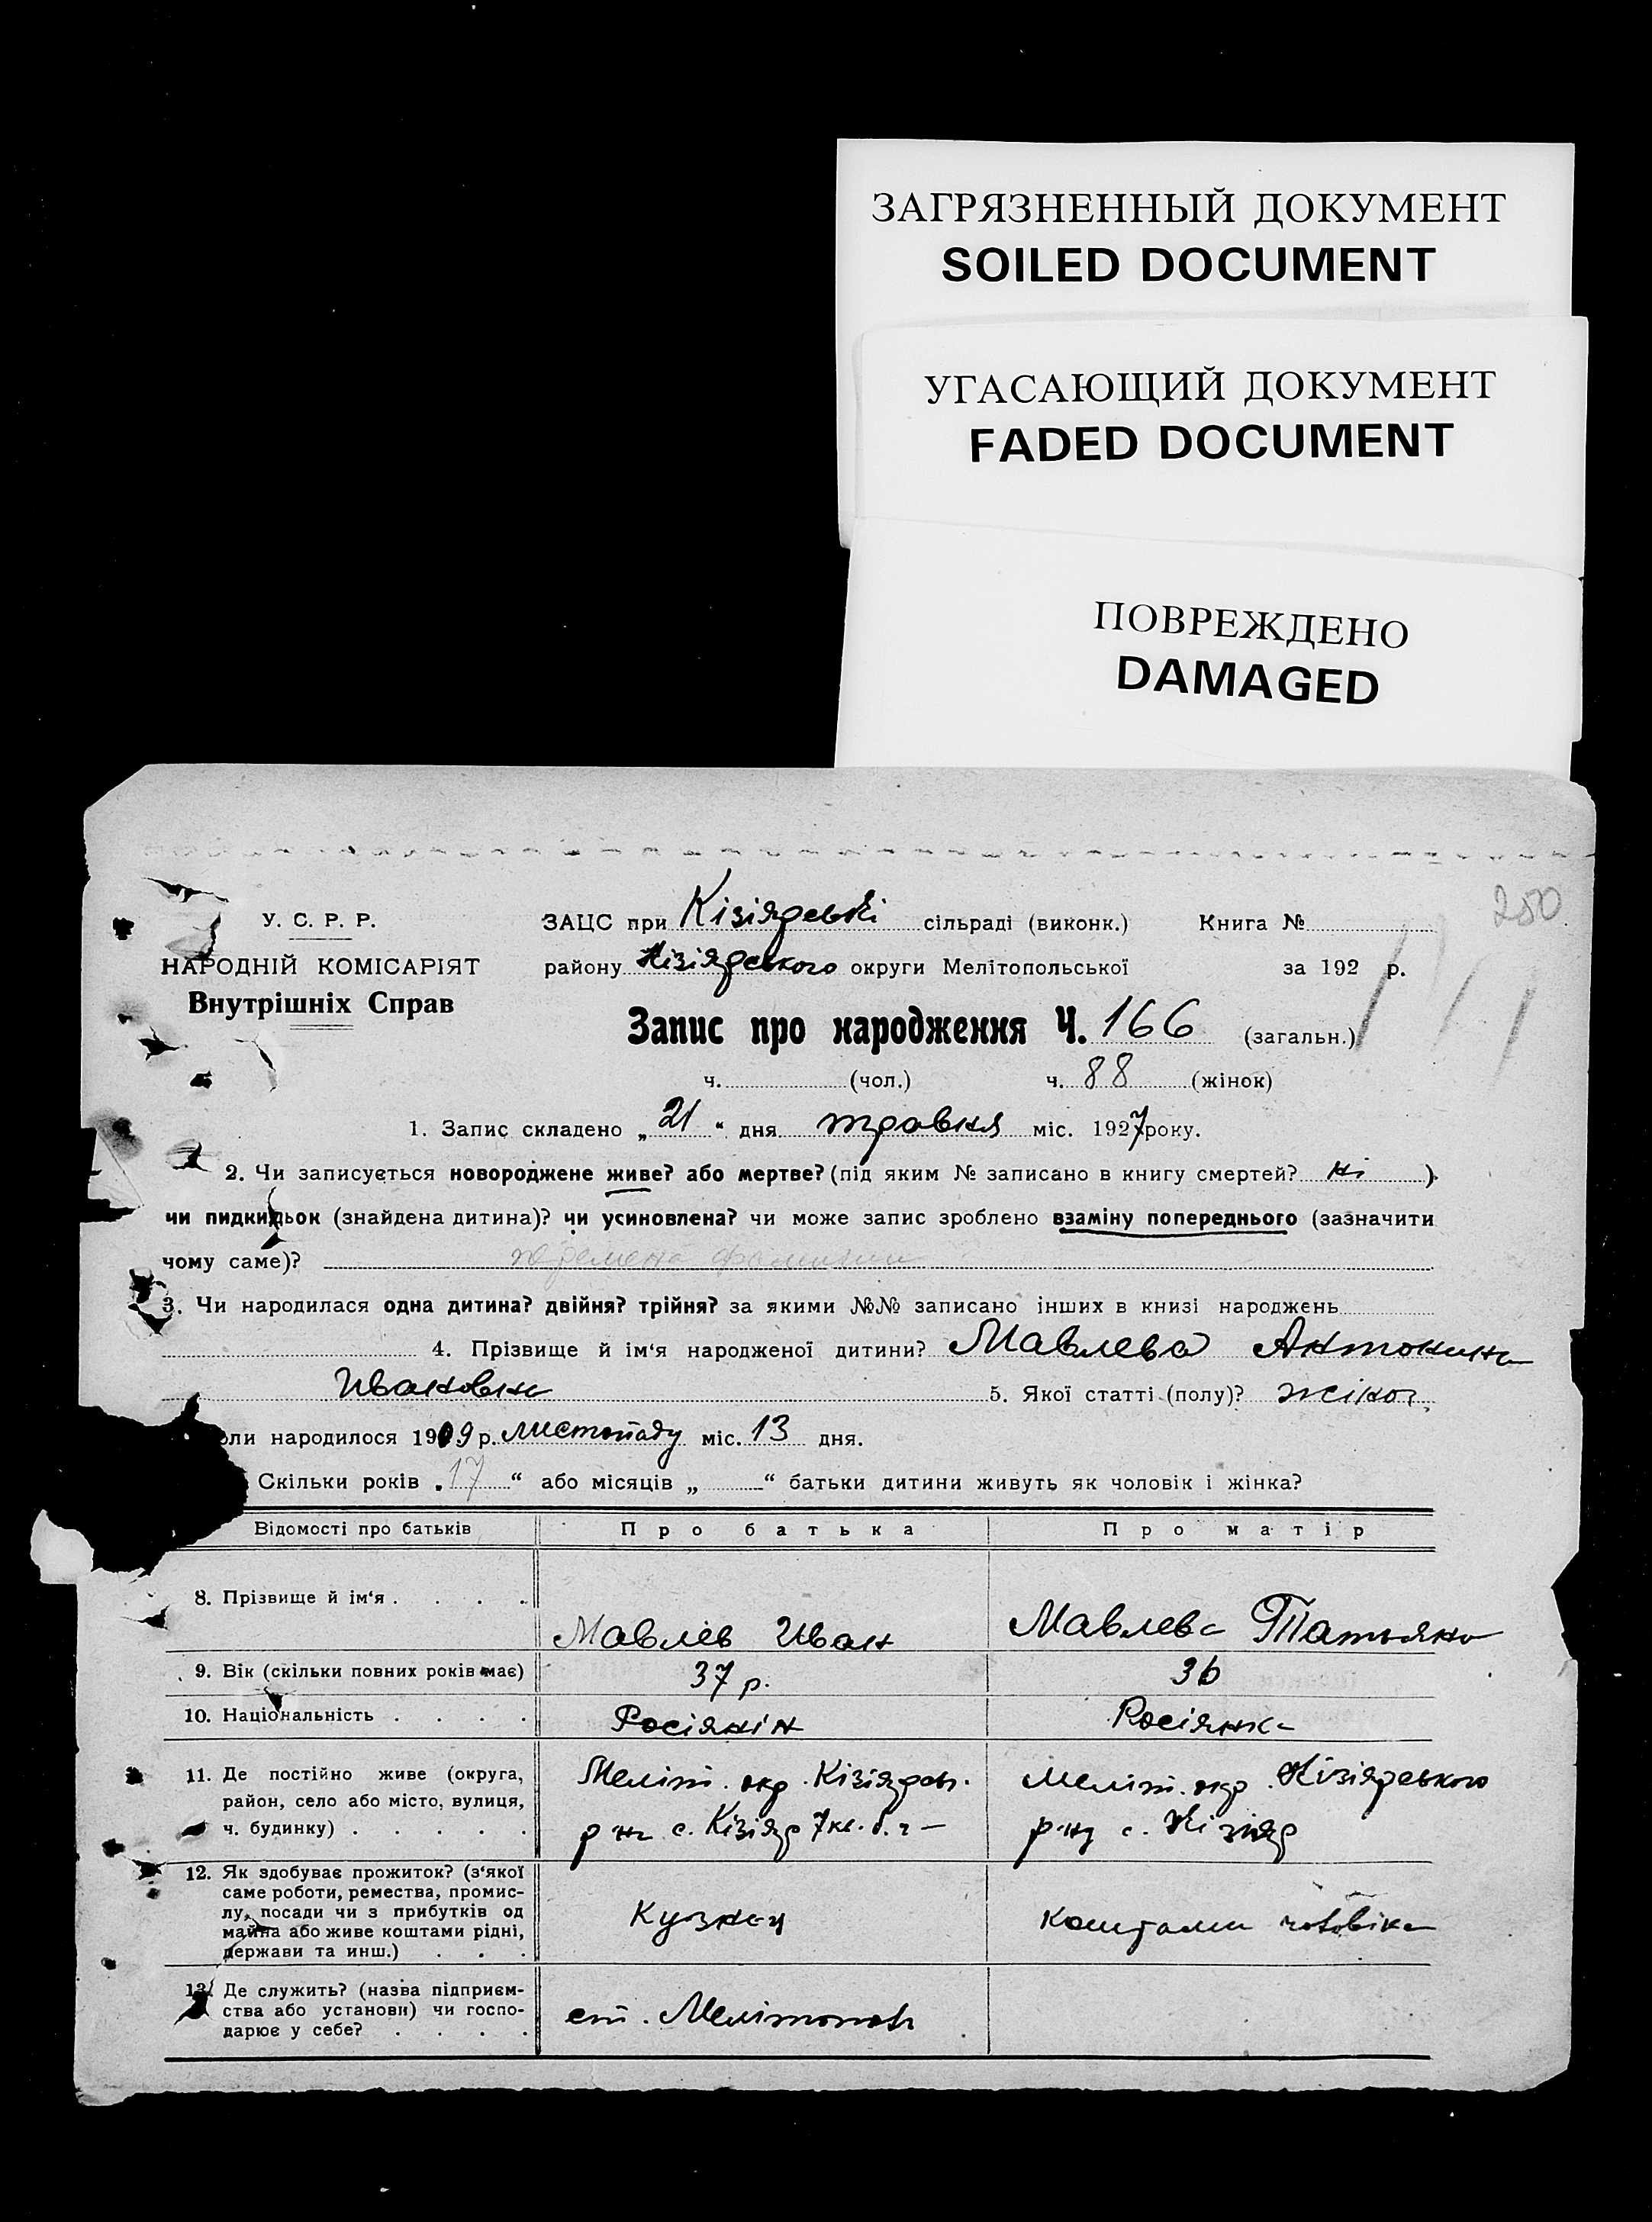 ЗАГРЯЗНЕННЫЙ ДОКУМЕНТ
SOILED DOCUMENT
УГАСАЮЩИЙ ДОКУМЕНТ
FADED DOCUMENT
ПОВРЕЖДЕНО
DAMAGED
250
У. С. Р. Р. ЗАЦС при Кізіярські сільраді (виконк.) Книга №
НАРОДНІЙ КОМІСАРІЯТ району Кізіярського округи Мелітопольської за 192 р.
Внутрішніх Справ
Запис про народження Ч. 166 (загальн.)
ч. (чол.) ч. 88 (жінок)
1. Запис складено „21“ дня травня міс. 1927 року.
2. Чи записується новороджене живе? або мертве? (під яким № записано в книгу смертей? ні ).
чи пидкидьок (знайдена дитина)? чи усиновлена? чи може запис зроблено взаміну попереднього (зазначити
чому саме)? перемена фамилии
3. Чи народилася одна дитина? двійня? трійня? за якими №№ записано інших в книзі народжень
4. Прізвище й ім'я народженої дитини? Мавлева Антонина
Ивановна 5. Якої статті (полу)? жіноч.
оли народилося 1909 р. листопаду міс. 13 дня.
Скільки років „17“ або місяців „ “ батьки дитини живуть як чоловік і жінка?
Відомості про батьків Про батька Про матір
8. Прізвище й ім'я . . . . Мавлєв Иван Мавлева Татьяна
9. Вік (скільки повних років має) 37 р. 36
10. Національність . . . . Росіянін Росіянка
11. Де постійно живе (округа,
район, село або місто, вулиця,
ч. будинку) . . . . .
Меліт. окр. Кізіярсь.
р-н с. Кізіяр 7 кв. б. ч –
Меліт. окр. Кізіярського
р-ну с. Кізіяр
12. Як здобуває прожиток? (з'якої
саме роботи, ремества, промис-
лу, посади чи з прибутків од
майна або живе коштами рідні,
держави та инш.) . . .
Кузнец
коштами чоловіка
13. Де служить? (назва підприєм-
ства або установи) чи госпо-
дарює у себе? . . . .
ст. Мелітополь